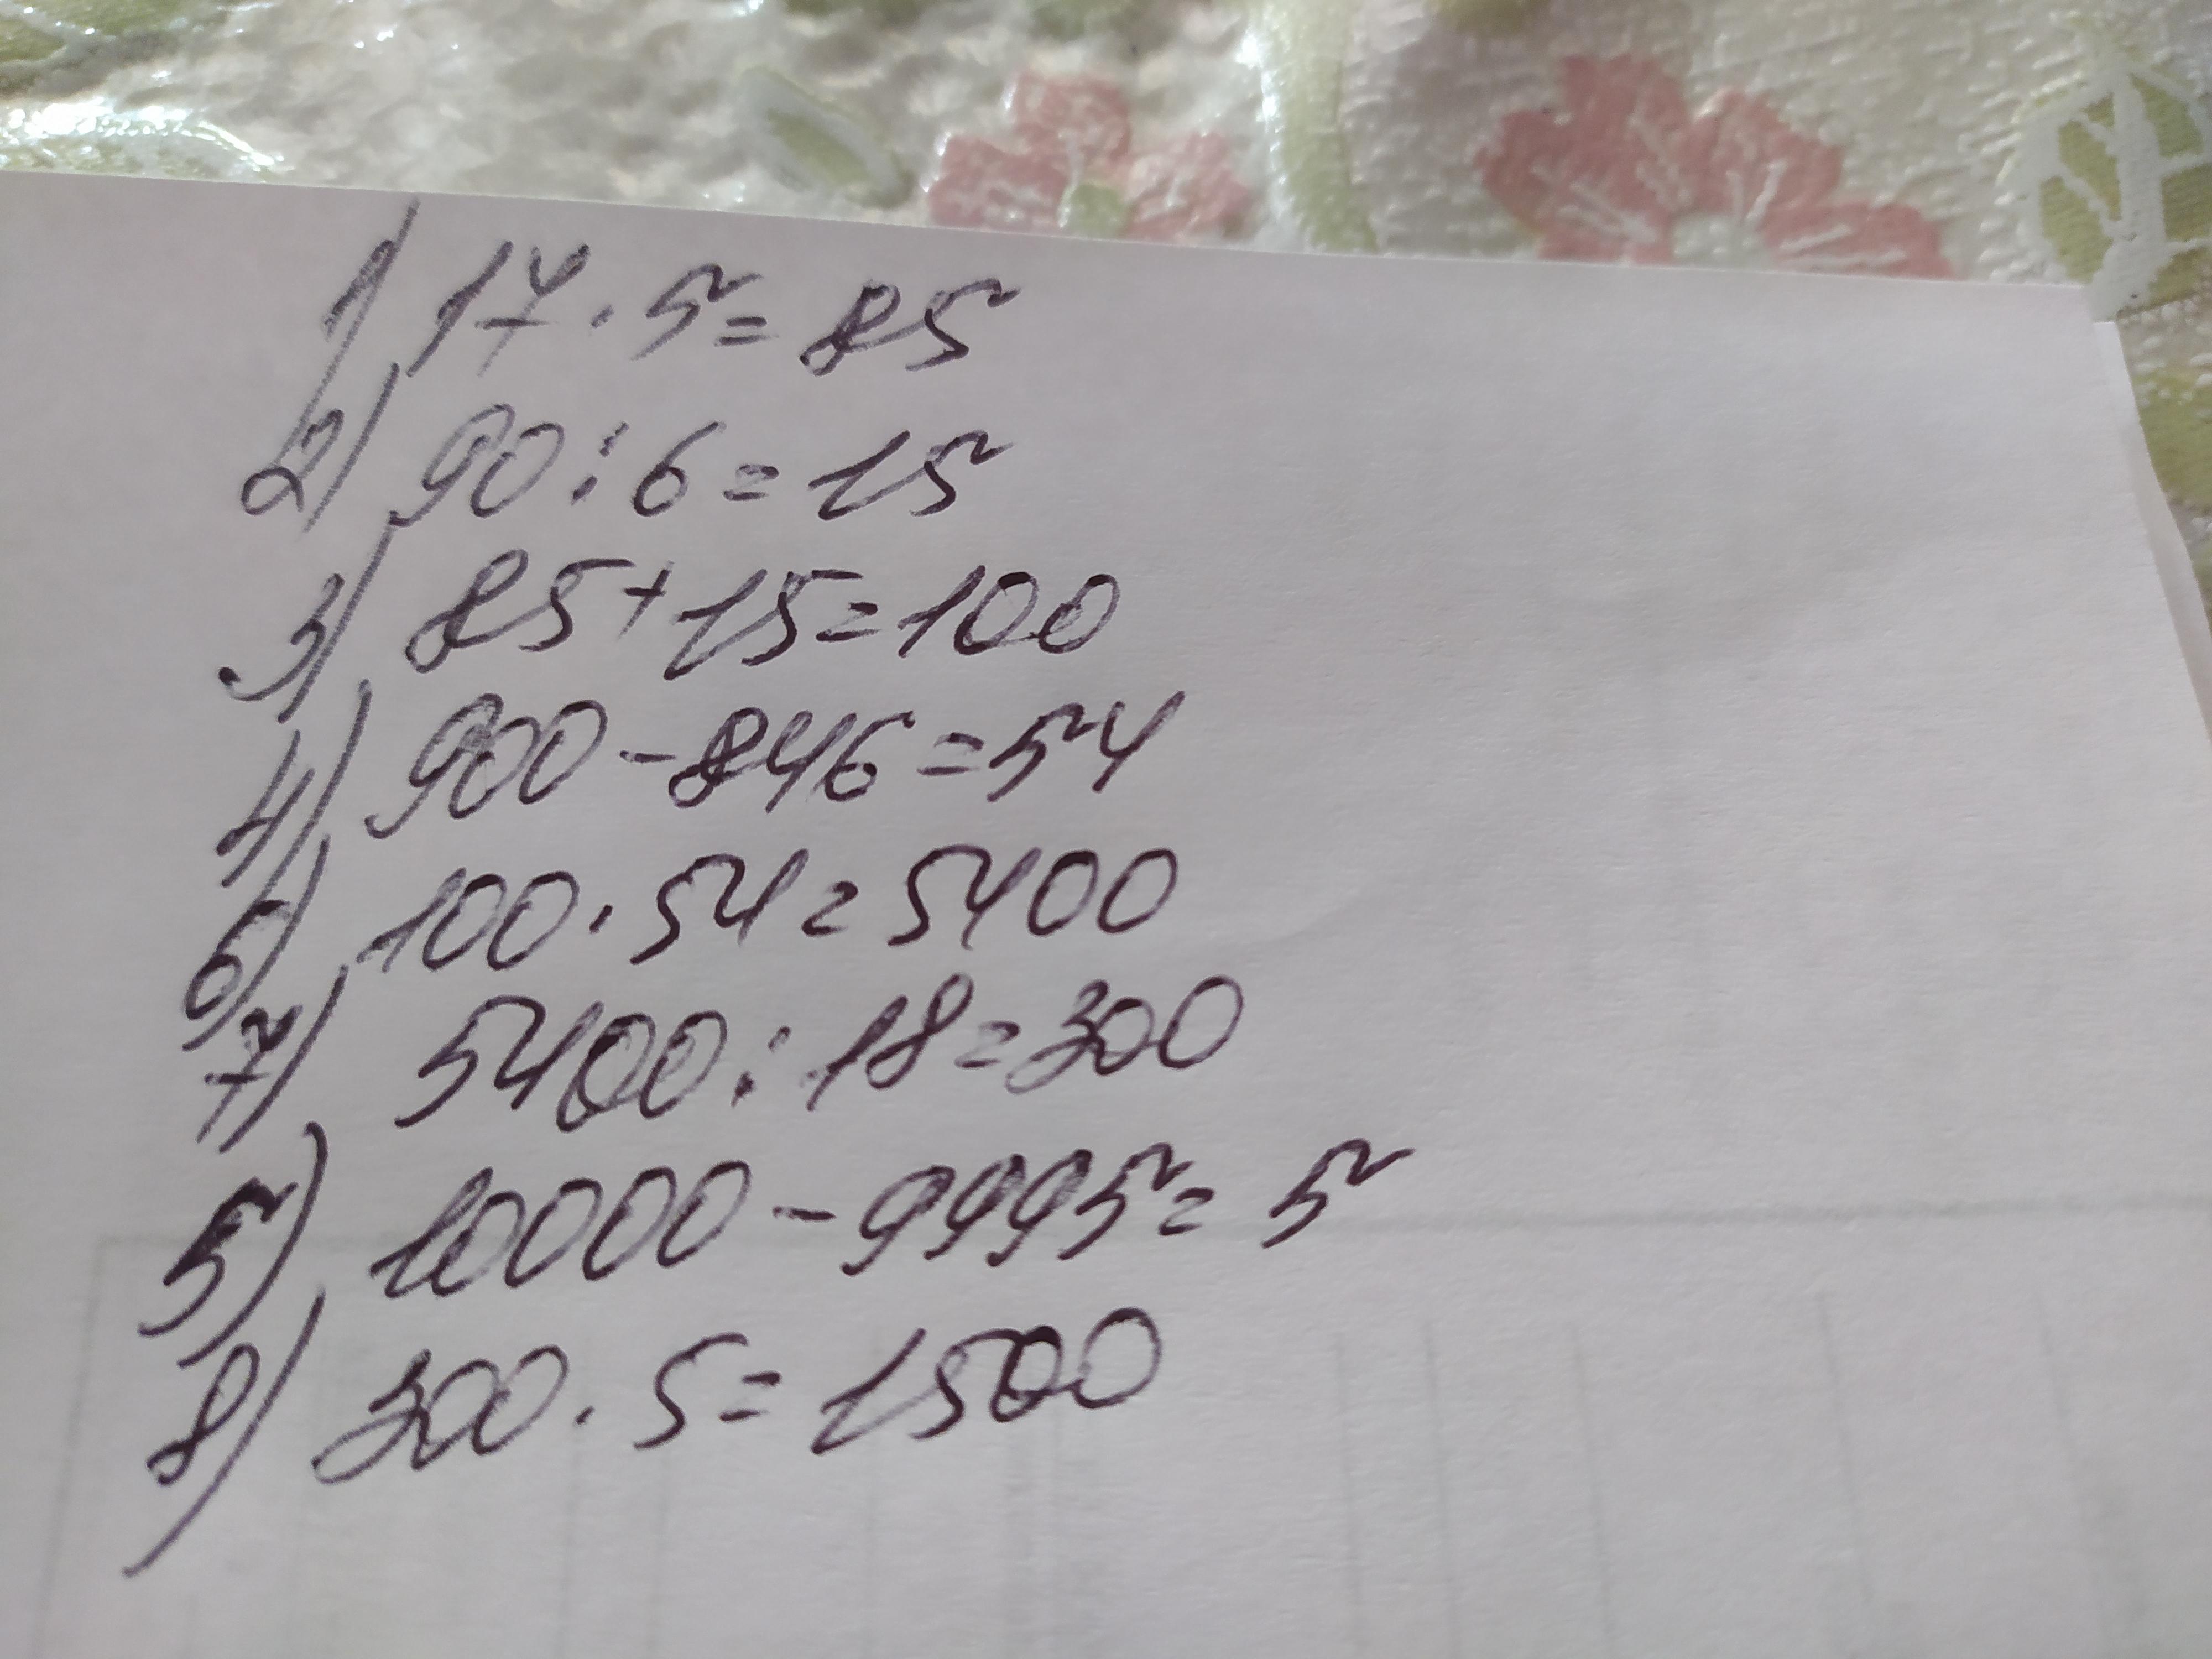 1) 17 · 5 = 85
2) 90 : 6 = 15
3) 85 + 15 = 100
4) 900 - 846 = 54
6) 100 · 54 = 5400
7) 5400 : 18 = 300
5) 10000 - 9995 = 5
8) 300 · 5 = 1500